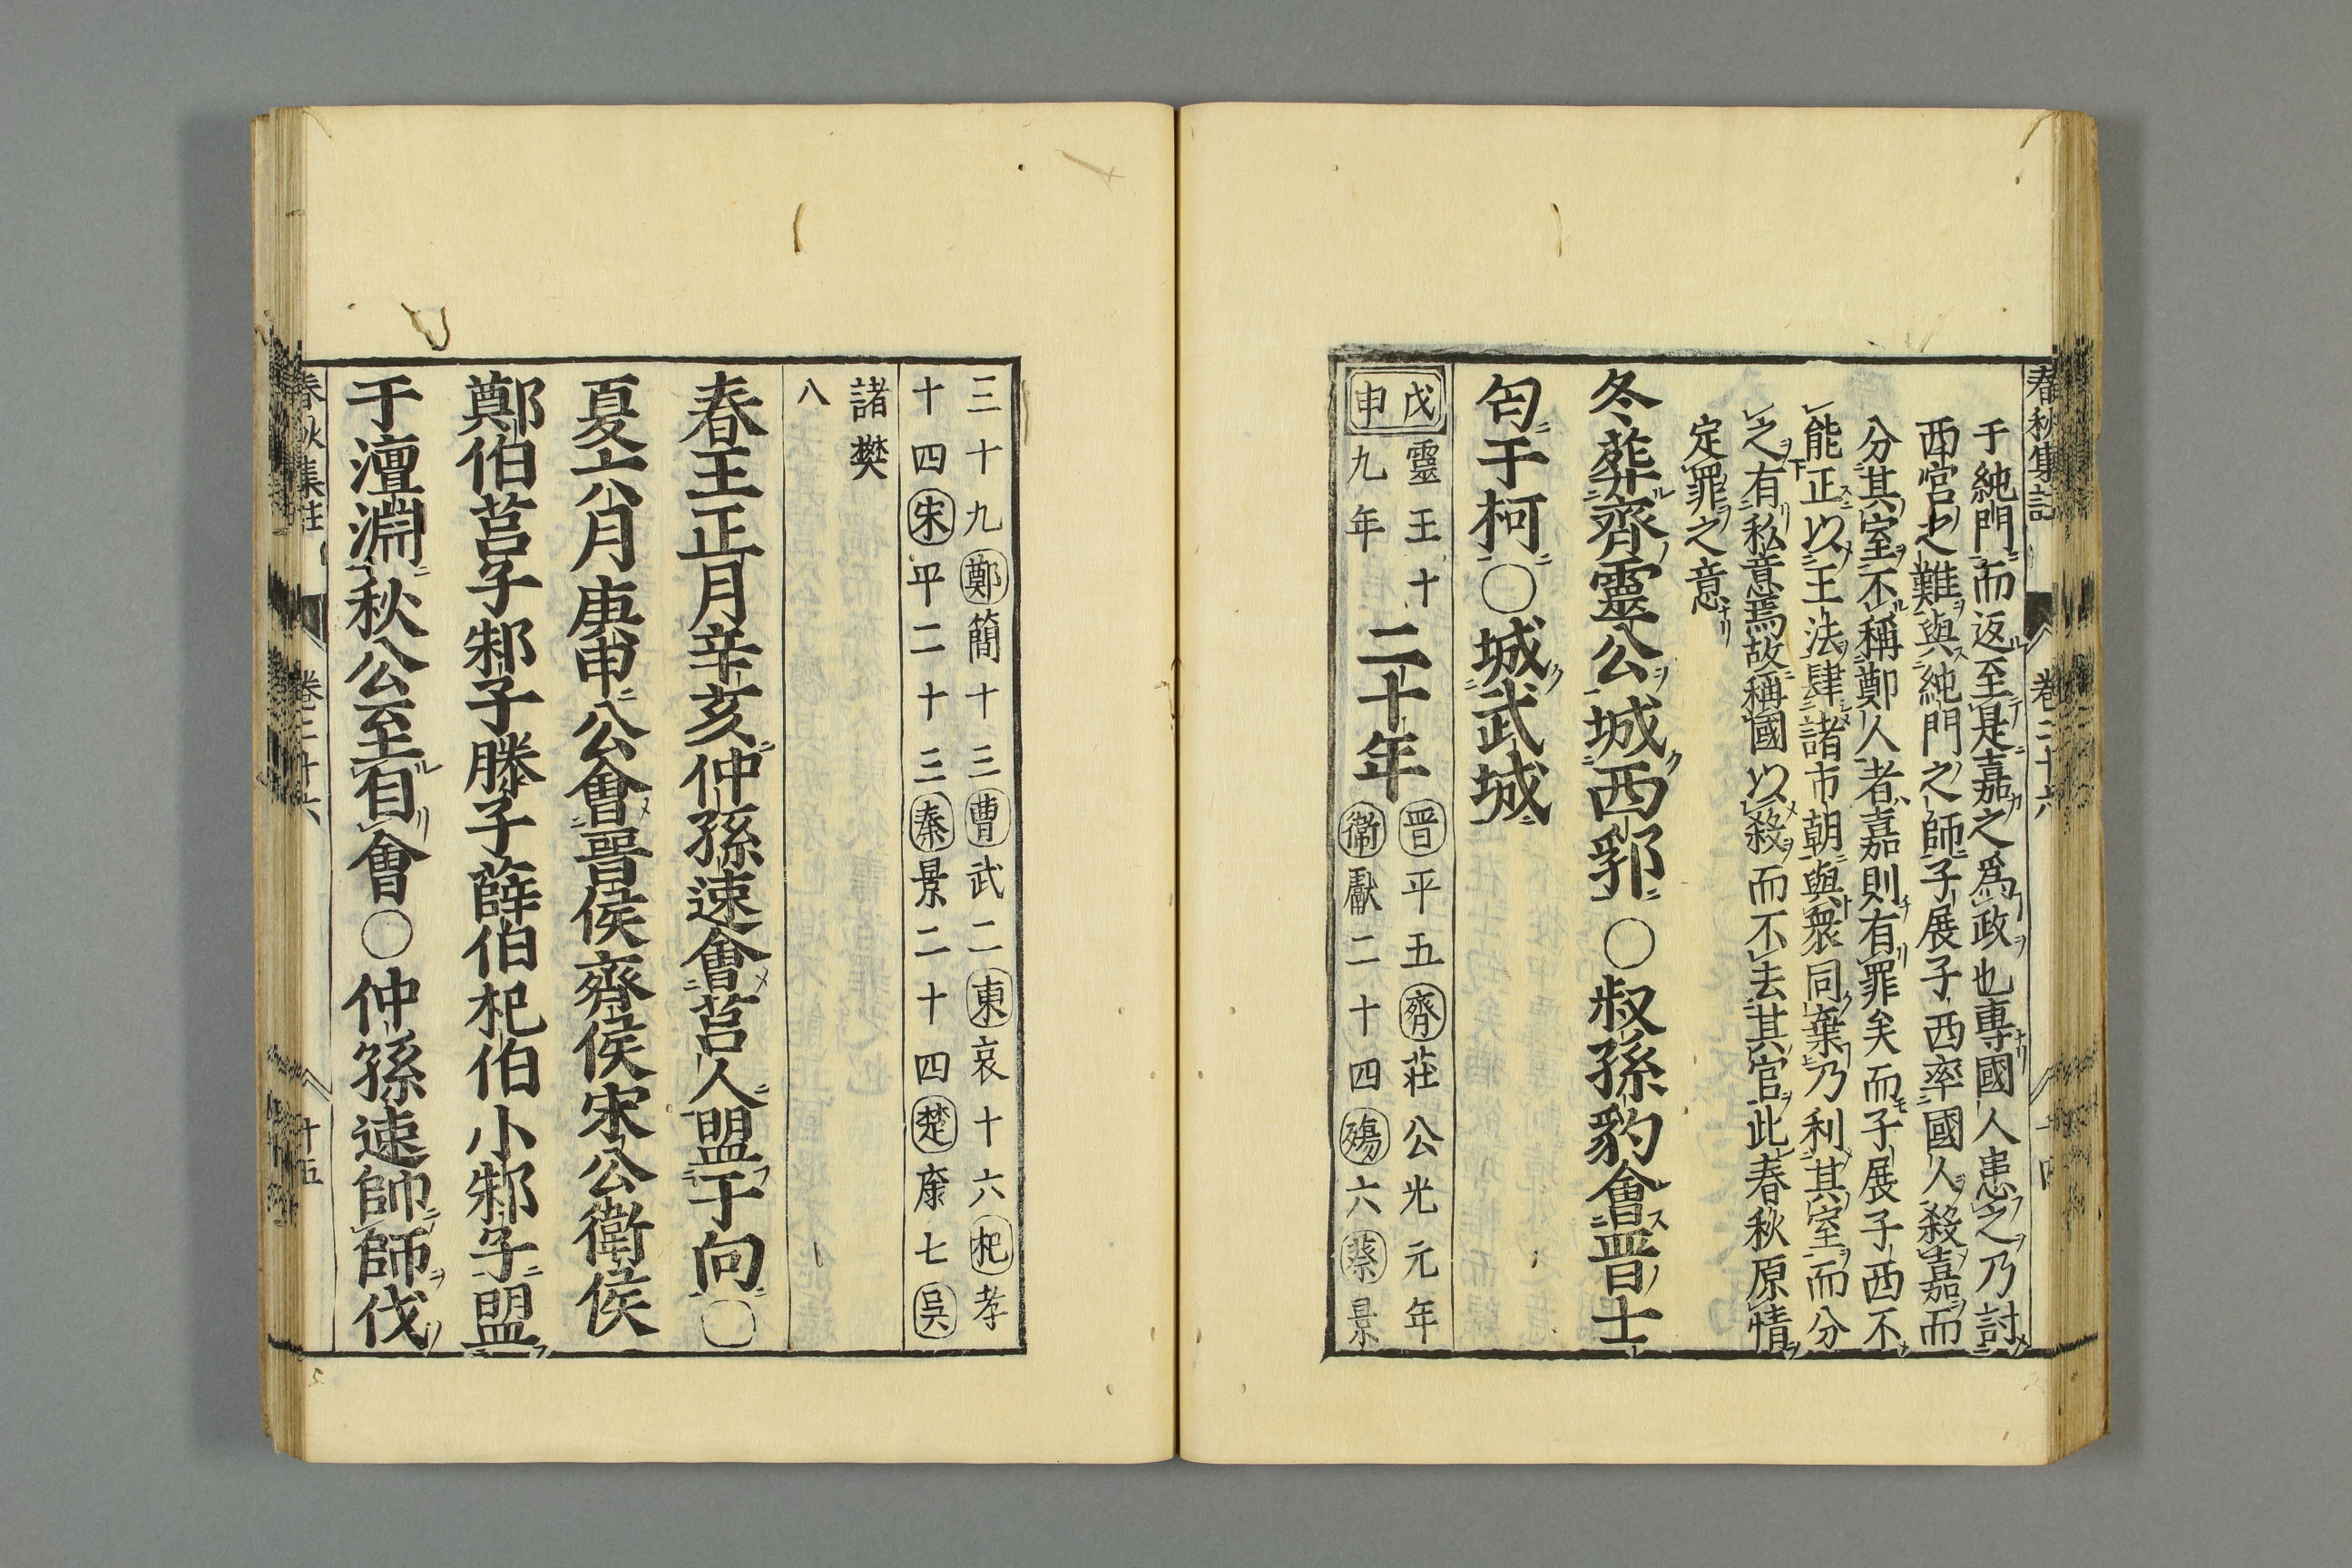 春秋集註 卷二十六
于純門而返至是嘉之爲政也專國人患之乃討
西宮之難與純門之師子展子西率國人殺嘉而
分其室不稱鄭人者嘉則有罪矣而子展子西不
能正以王法肆諸市朝與衆同棄乃利其室而分
之有私意焉故稱國以殺而不去其官此春秋原情
定罪之意
冬葬齊靈公城西郛○叔孫豹會晋士
匄于柯○城武城
戊申 靈王十九年 二十年 晋平五齊莊公光元年衛獻二十四殤六蔡景
三十九鄭簡十三曹武二東哀十六杞孝
十四宋平二十三秦景二十四楚康七吳
諸樊
八
春王正月辛亥仲孫速會莒人盟于向○
夏六月庚申公會晋侯齊侯宋公衛侯
鄭伯莒子邾子滕子薛伯杞伯小邾子盟
于澶淵秋公至自會○仲孫速帥師伐
春秋集註 卷二十六 十五